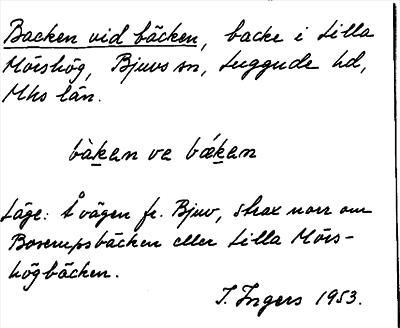 Backen vid bäcken, backe i Lilla
Mörshög, Bjuvs sn, Luggude hd,
Mhs län.
bàken ve bǽken
Läge: Å vägen fr. Bjuv, strax norr om
Boserupsbäcken eller Lilla Mörs-
högbäcken.
I. Ingers 1953.